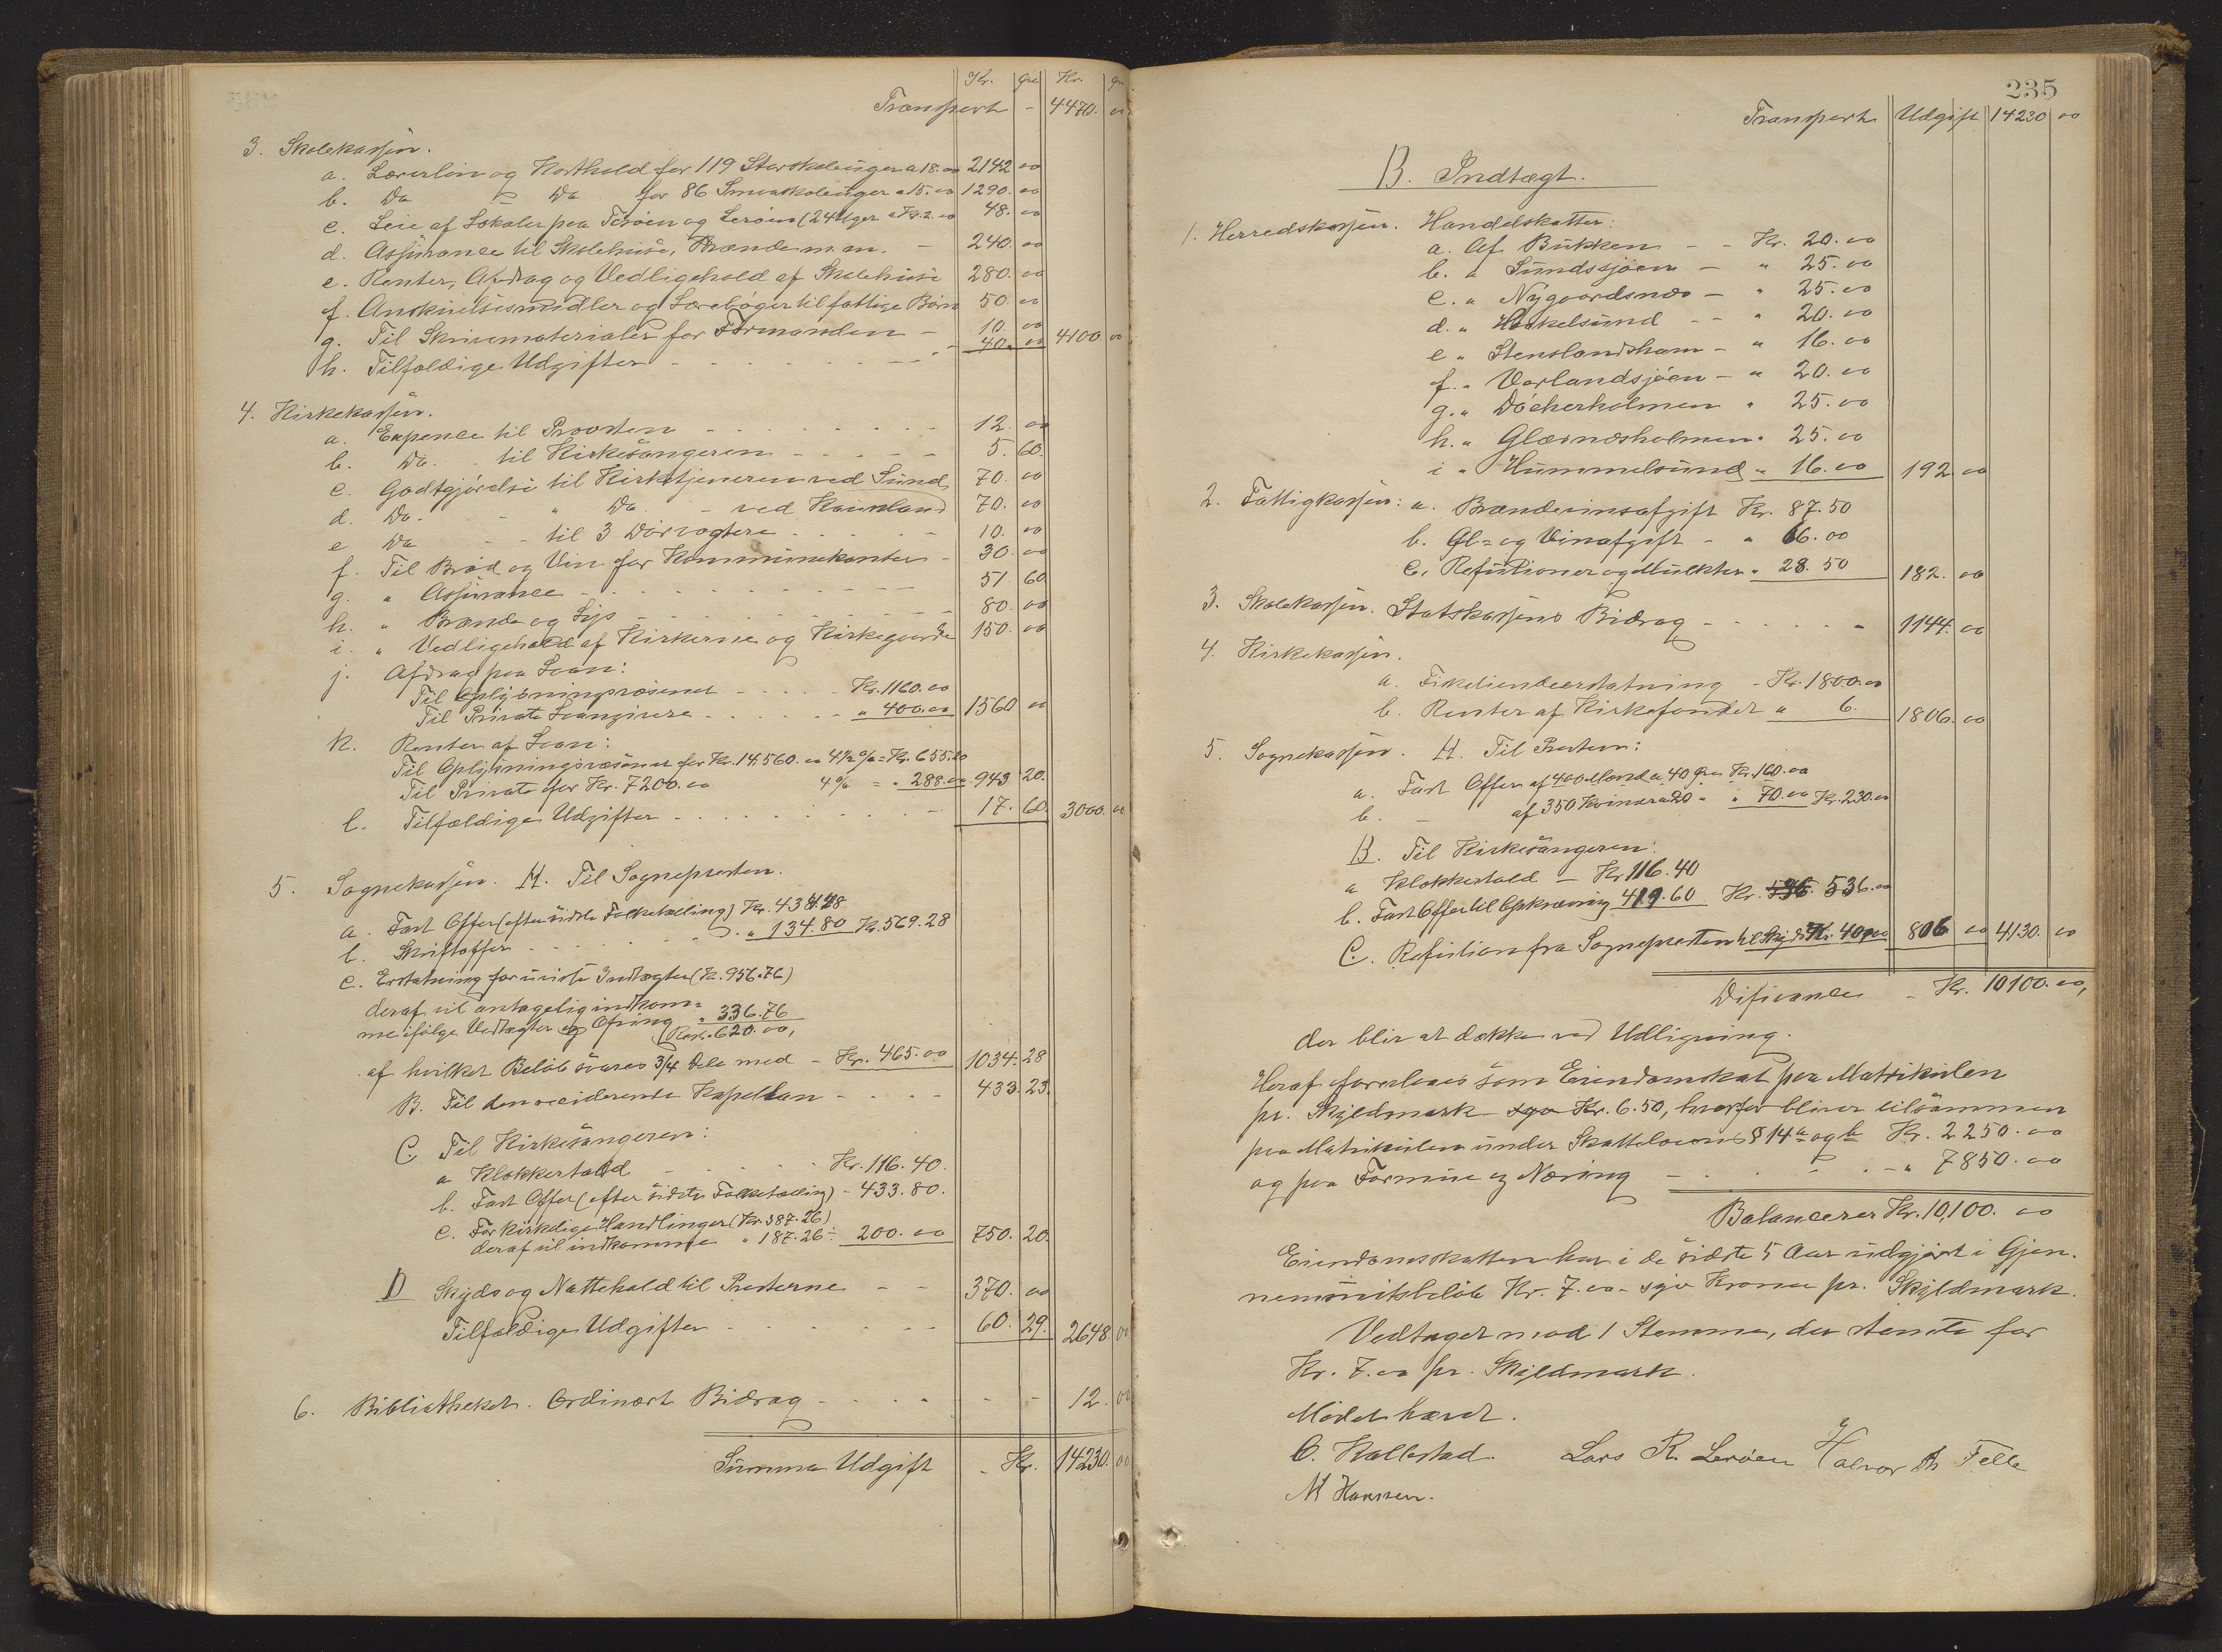 Kr. Øre Kr. Øre
Transport - 4470. 00
3. Skolekassen.
a. Lærerløn og Kosthold for 119 Storskoleuger a 18.00 2142 00
b. Do " Do for 86 Smaaskoleuger a 15.00 1290. 00
c. Leie af Lokaler paa Tosøen og Lerøen (24 Uger a Kr. 2.00 48. 00
d. Assurance til Skolehuse, Brænde m. m. - 240. 00
e. Renter, Afdrag og Vedligehold af Skolehuse 280. 00
f. Anskuelsesmidler og Lærebøger til fattige Børn 50. 00
g. Til Skrivematerialer for Formanden - 10. 00
h. Tilfældige Udgifter - - - - 40. 00 4100. 00
4. Kirkekassen.
a. Expence til Provsten - - - - 12. 00
b. Do. til Kirkesangeren - - - - 5. 60.
c. Godtgjørelse til Kirketjeneren ved Sund 70. 00
d. Do. - " Do - ved Kausland 70. 00
e Do - - til 3 Dørvogtere - - - 10. 00
f. Til Brød og Vin for Kommunikanter - 30. 00
g. " Assurance - - - - 51. 60
h. " Brænde og Lys - - - - 80. 00
i. " Vedligehold af Kirkerne og Kirkegaarde 150. 00
j. Afdrag paa Laan:
Til Oplysningsvæsenet - - - - Kr. 1160.00
Til Private Laangivere - - - - " 400.00 1560 00
k. Renter af Laan:
Til Oplysningsvæsenet for Kr. 14.560.00 4½ % = Kr. 655.20
Til Private for Kr. 7200.00 4% = " 288.00 943 20.
l. Tilfældige Udgifter - - - - 17. 60. 3000. 00
5. Sognekassen. A. Til Sognepresten.
a. Fast Offer (efter sidste Folketælling) Kr. 434.48
b. Skriftoffer - - - - " 134.80 Kr. 569.28
c. Erstatning for uvisse Indtægter (Kr. 956.76)
deraf vil antagelig indkom=
me ifølge Vedtægter og Ofring " 336.76
Rest. 620.00,
af hvilket Beløb svares 3/4 Dele med - Kr. 465.00 1034. 28
B. Til den residerende Kapellan - - - - 433. 23.
C. Til Kirkesangeren:
a Klokkertold - - - - Kr. 116.40.
b. Fast Offer (efter sidste Folketælling) - 433.80.
c. For kirkelige Handlinger (Kr. 387.26)
deraf vil indkomme " 187.26 = 200.00 750. 20.
D Skyds og Nattehold til Presterne - - 370. 00
Tilfældige Udgifter - - - - 60. 29. 2648. 00
6. Bibliotheket. Ordinært Bidrag - - - - 12. 00
Summa Udgift - Kr. 14230. 00
235
Transport Udgift 14230 00
B. Indtægt.
1. Herredskassen. Handelskatter:
a. Af Bukken - - Kr. 20.00
b. " Sundssjøen - " 25.00
c. " Nygaardsnæs - " 25.00
d. " Haakelsund - - " 20.00
e " Stenslandsham - " 16.00
f. " Vorlandsjøen - " 20.00
g. " Døckerholmen " 25.00
h. " Glæsnæsholmen " 25.00
i " Hummelsund " 16.00 192 00
2. Fattigkassen: a. Brændevinsafgift Kr. 87.50
b. Øl= og Vinafgift - " 66.00
c. Refusioner og Mulkter " 28.50 182. 00
3. Skolekassen. Statskassens Bidrag - - - - 1144. 00
4. Kirkekassen.
a. Fisketiendeerstatning - Kr. 1800.00
b. Renter af Kirkefondet " 6. 1806. 00
5. Sognekassen. A. Til Presten:
a. Fast Offer af 400 Mænd a 40 Øre Kr. 160.00
b. - af 350 Kvinder a 20 " " 70.00 Kr. 230.00
B. Til Kirkesangeren:
a Klokkertold - Kr 116.40
b. Fast Offer til Opkrævning 419.60 Kr. 536. 536.00
C. Refusion fra Sognepresten til Skyds Kr. 40.00 806 00 4130. 00
Difirance - Kr. 10100.00,
der blir at dække ved Udligning.
Heraf foreslaaes som Eiendomskat paa Matrikulen
pr. Skyldmark syv Kr. 6.50, hvorfor bliver tilsammen
paa Matrikulen under Skatteloven § 14 a og b Kr. 2250.00
og paa Formue og Næring - - - - " 7850.00
Balancerer Kr. 10,100. 00
Eiendomsskatten har i de sidste 5 Aar udgjort i Gjen-
nemsnitsbeløb Kr. 7.00 - syv Kroner pr. Skyldmark.
Vedtaget mod 1 Stemme, der stemte for
Kr. 7.00 pr. Skyldmark.
Mødet hævet.
O. Kallestad. Lars R. Lerøen Halvor Th Telle
M Hanssen.